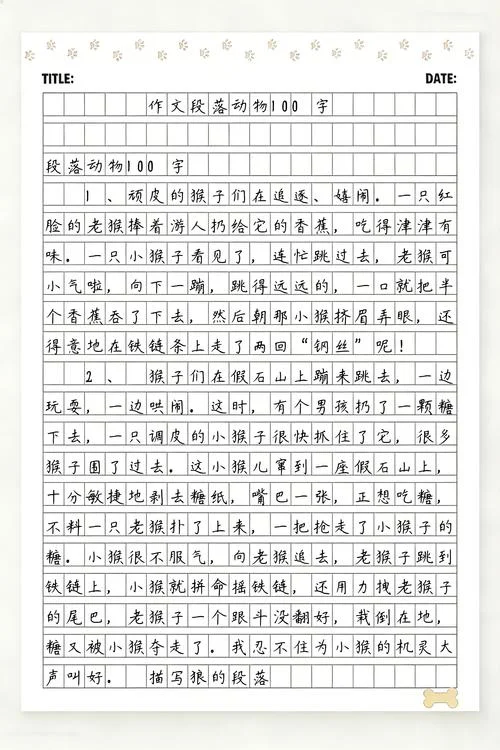 TITLE: DATE:
作文段落动物100 字
段落动物100 字
1 、顽皮的猴子们在追逐、嬉闹。一只红
脸的老猴捧着游人扔给它的香蕉，吃得津津有
味。一只小猴子看见了，连忙跳过去，老猴可
小气啦，向下一蹦，跳得远远的，一口就把半
个香蕉吞了下去，然后朝那小猴挤眉弄眼，还
得意地在铁链条上走了两回“钢丝”呢！
2 、 猴子们在假石山上蹦来跳去，一边
玩耍，一边哄闹。这时，有个男孩扔了一颗糖
下去，一只调皮的小猴子很快抓住了它，很多
猴子围了过去。这小猴儿窜到一座假石山上，
十分敏捷地剥去糖纸，嘴巴一张，正想吃糖，
不料一只老猴扑了上来，一把抢走了小猴子的
糖。小猴很不服气，向老猴追去，老猴子跳到
铁链上，小猴就拼命摇铁链，还用力拽老猴子
的尾巴，老猴子一个跟斗没翻好，栽倒在地，
糖又被小猴夺走了。我忍不住为小猴的机灵大
声叫好。 描写狼的段落